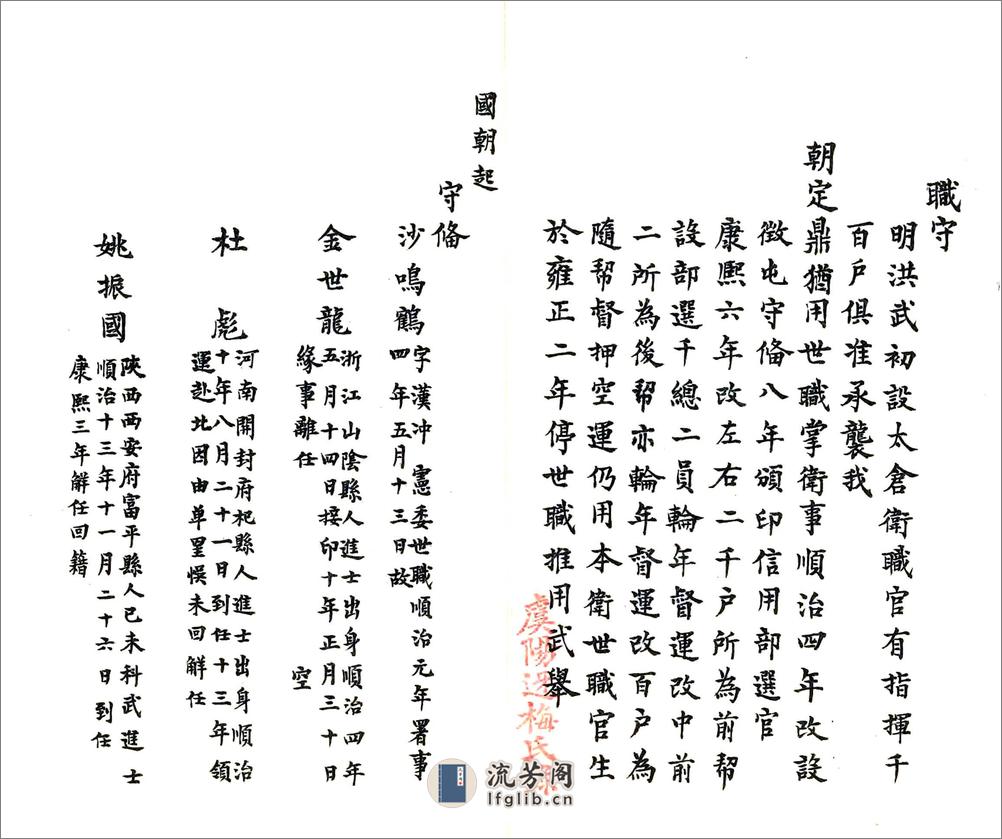 職守
明洪武初設太倉衛職官有指揮千
百戶俱准承襲我
朝定鼎猶用世職掌衛事順治四年改設
徵屯守俻八年頒印信用部選官
康熙六年改左右二千戶所為前幇
設部選千總二員輪年督運改中前
二所為後幇亦輪年督運改百戶為
隨幇督押空運仍用本衛世職官生
於雍正二年停世職推用武舉
國朝起
守俻
沙鳴鶴
字漢冲憲委世職順治元年署事
四年五月十三日故
金世龍
浙江山陰縣人進士出身順治四年
五月十四日接印十年正月三十日
緣事離任
空
杜彪
河南開封府杞縣人進士出身順治
十年八月二十一日到任十三年領
運赴北因由单罣悞未回解任
姚振國
陝西西安府富平縣人已未科武進士
順治十三年十一月二十六日到任
康熙三年解任回籍
流芳阁
lfglib.cn